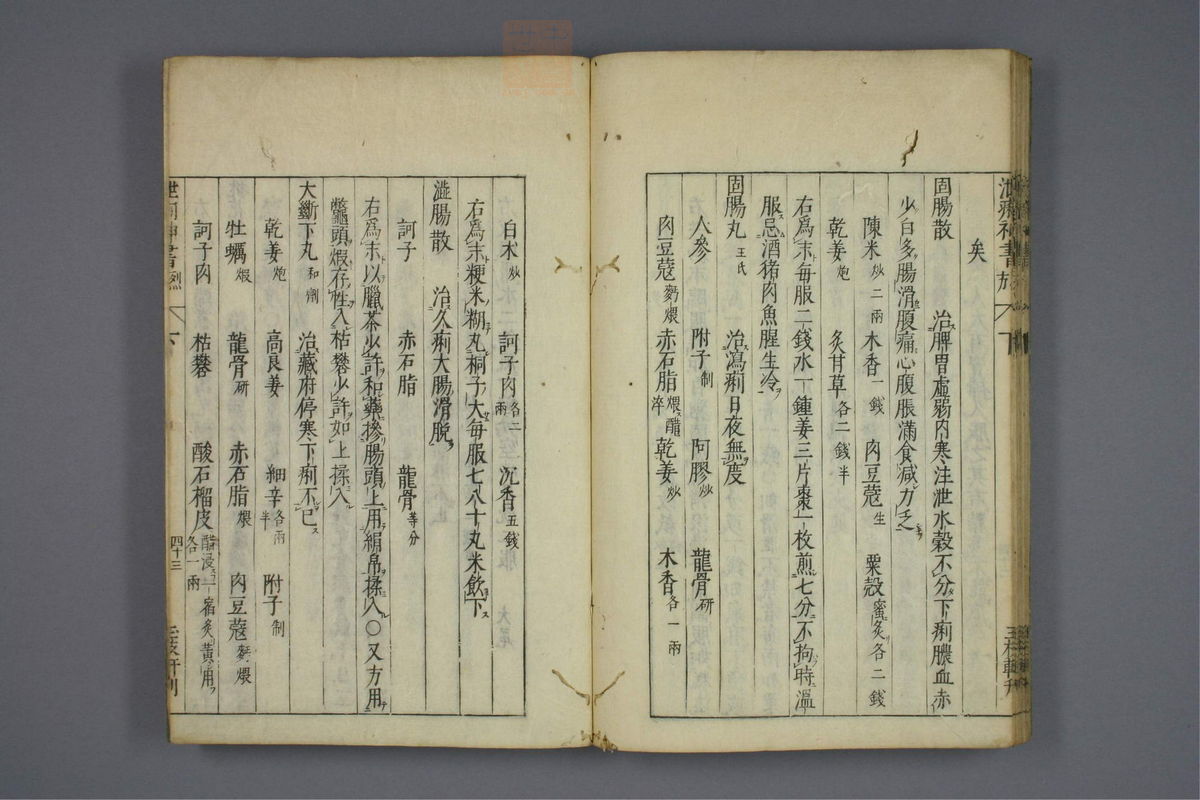 矣
固腸散 治脾胃虛弱內寒注泄水穀不分下痢膿血赤
少白多腸滑腹痛心腹脹滿食減力乏
陳米炒二兩 木香一錢 肉豆蔻生 粟殼蜜炙各二錢
乾姜炮 炙甘草各二錢半
右爲末每服二錢水一鍾姜三片棗一枚煎七分不拘時溫
服忌酒猪肉魚腥生冷
固腸丸王氏 治瀉痢日夜無度
人參 附子制 阿膠炒 龍骨研
肉豆蔻麪煨 赤石脂煨醋淬 乾姜炒 木香各一兩
白朮炒 訶子肉各二兩 沉香五錢
右爲末粳米糊丸桐子大每服七八十丸米飲下
澁腸散 治久痢大腸滑脫
訶子 赤石脂 龍骨等分
右爲末以臘茶少許和藥摻腸頭上用絹帛揉入○又方用
鱉頭煅存性入枯礬少許如上揉入
大斷下丸和劑 治藏府停寒下痢不已
乾姜炮 高良姜 細辛各兩半 附子制
牡蠣煅 龍骨研 赤石脂煨 肉豆蔻麪煨
訶子肉 枯礬 酸石榴皮醋浸一宿炙黃用各一兩
下
四十三